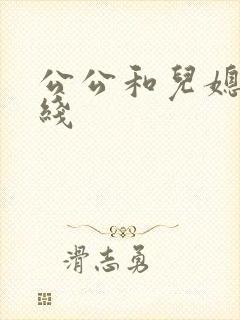 公公和兒媳
綫
滑志勇